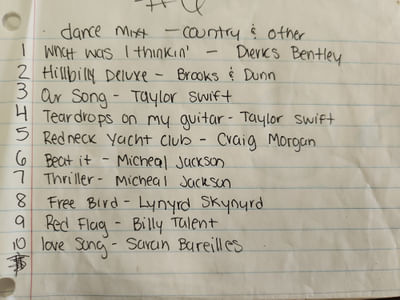 #6
dance mix - country & other
1 What was I thinkin' - Dierks Bentley
2 Hillbilly Deluxe - Brooks & Dunn
3 Our Song - Taylor Swift
4 Teardrops on my guitar - Taylor Swift
5 Redneck Yacht Club - Craig Morgan
6 Beat it - Micheal Jackson
7 Thriller - Micheal Jackson
8 Free Bird - Lynyrd Skynyrd
9 Red Flag - Billy Talent
10 love Song - Sarah Bareilles